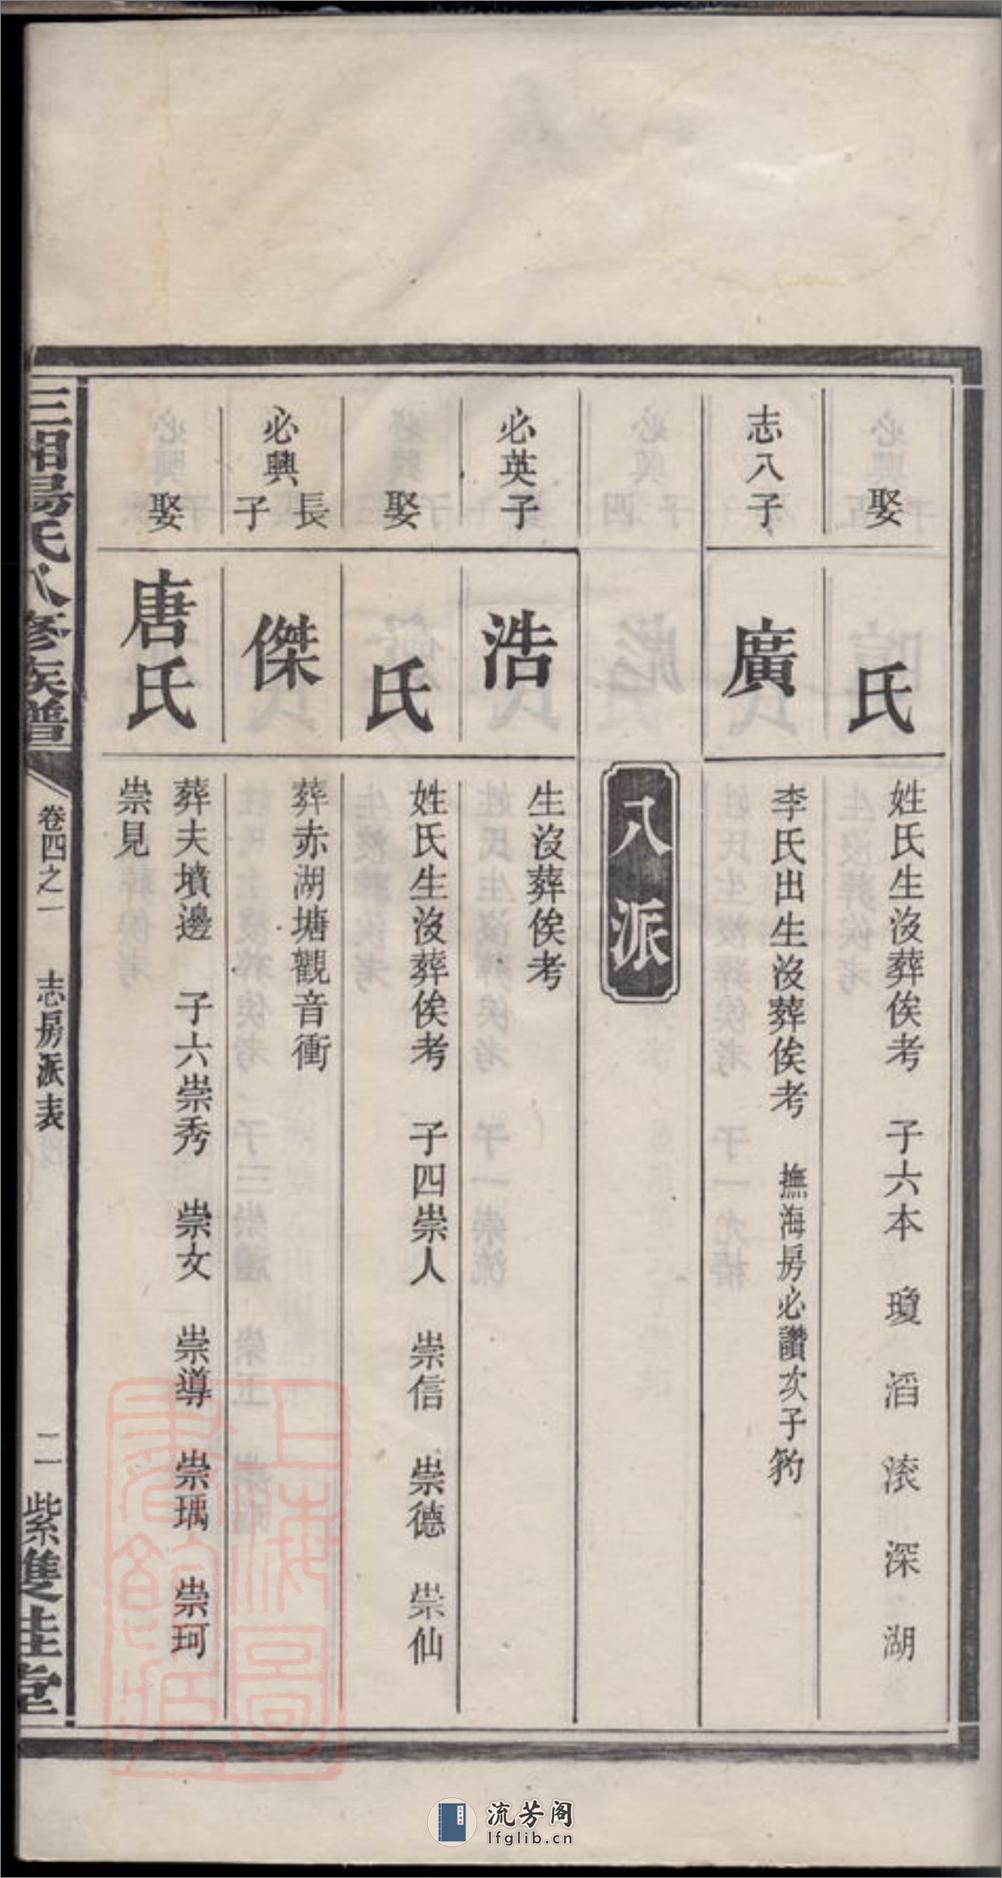 娶
氏
姓氏生沒葬俟考 子六本 瓊 滔 滚 深 湖
志八子
廣
李氏出生沒葬俟考 撫海房必讚次子
八派
必英子
浩
生沒葬俟考
娶
氏
姓氏生沒葬俟考 子四崇人 崇信 崇德 崇仙
必興長子
傑
葬赤湖塘觀音衝
娶
唐氏
葬夫墳邊 子六崇秀 崇女 崇導 崇瑀 崇珂
崇見
三湘湯氏八修族譜
卷四之一 志房派表
二 紫雙桂堂
上海圖書館藏
流芳阁
lfglib.cn